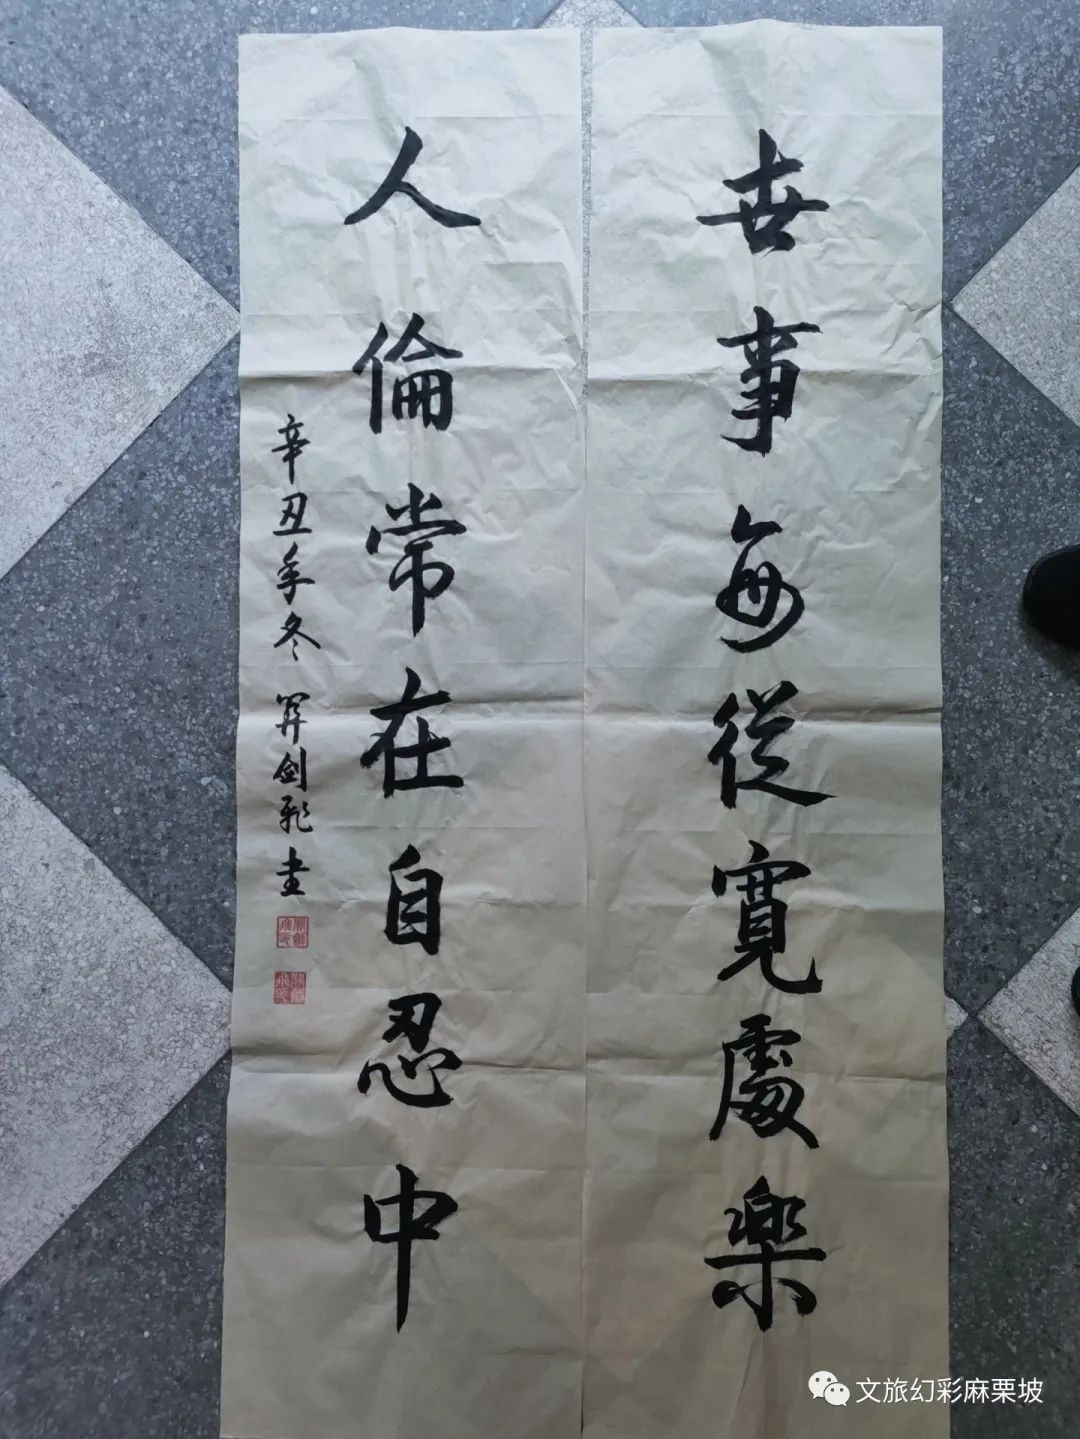 世事每從寬處樂
人倫常在自忍中
辛丑年冬 開劍飛書
文旅幻彩麻栗坡